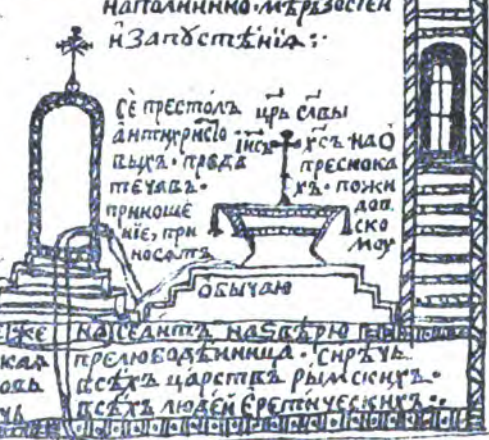 наполнинно·мѣрзостей
и запустѣнїѧ:·
Се престолъ
антихристо
выхъ·преда
течавъ·
приноше
нїе, при
носѧтъ
црь слвы
іисъ хсъ на о
преснока
хъ· пожи
дов
ско
моу
обычаю
на ѕвѣрю
кая прелюбодѣиница· сирѣчь
овь всѣхъ царствъ рымскихъ·
чь всѣхъ людей еретическихъ:·